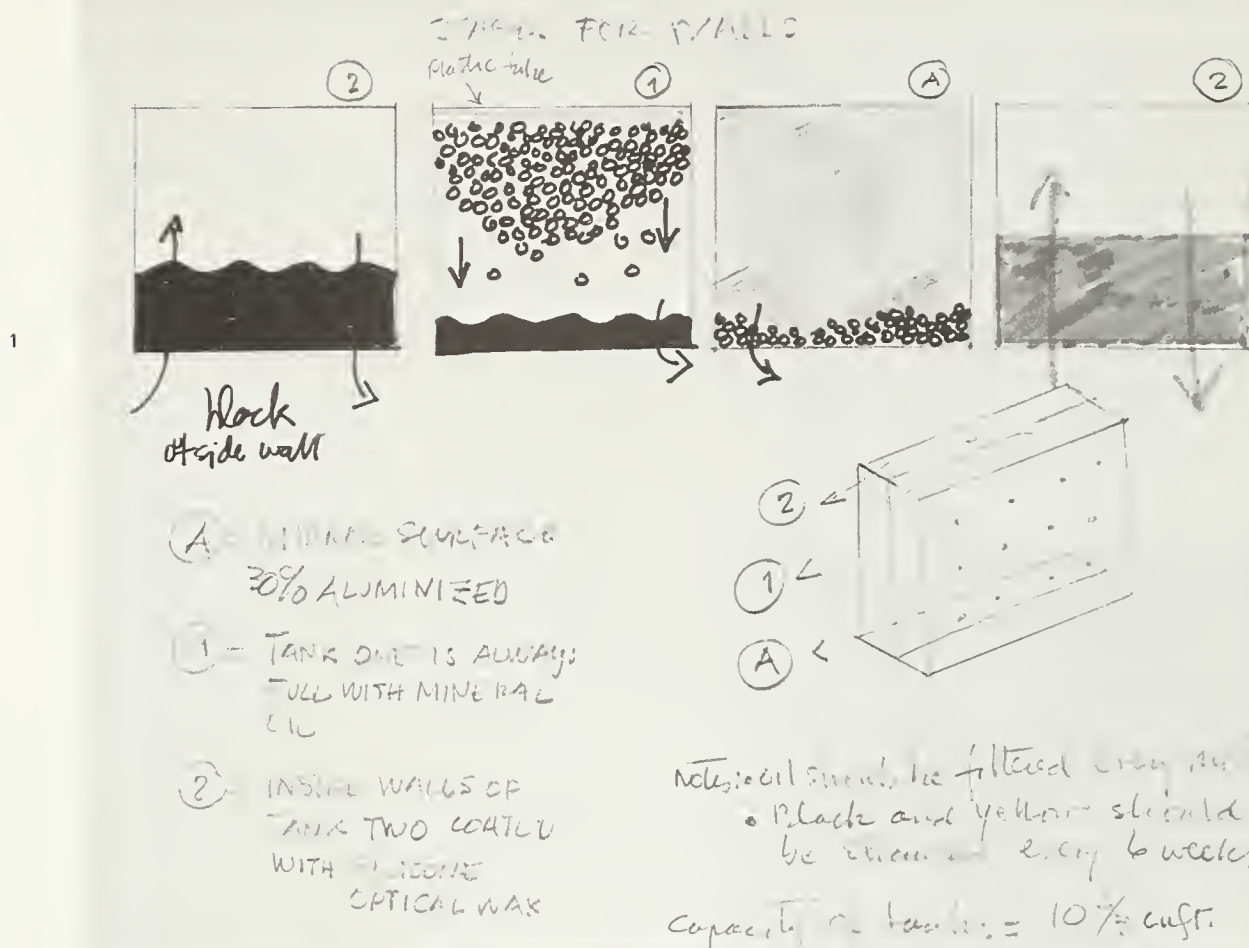 FOR WALLS
plastic tube
2
1
A
2
1
black
outside wall
2
1
A
A - MIRROR SURFACE
30% ALUMINIZED
1 - TANK ONE IS ALWAYS
FULL WITH MINERAL
OIL
2 - INSIDE WALLS OF
TANK TWO COATED
WITH SILICONE
OPTICAL WAX
Notes: oil should be filtered every
• Black and yellow should
be every 6 weeks
Capacity = 10 cuft.